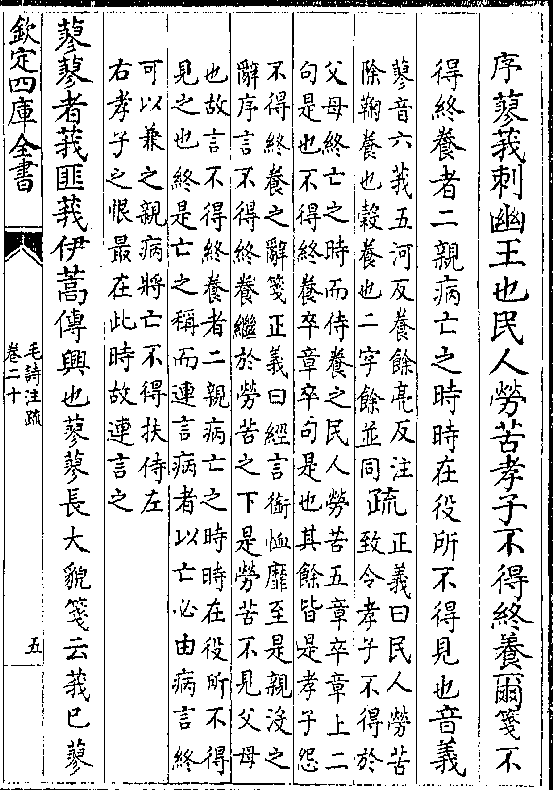 序蓼莪刺幽王也民人勞苦孝子不得終養爾箋不
得終養者二親病亡之時時在役所不得見也音義
蓼音六莪五河反養餘亮反注
除鞠養也穀養也二字餘並同
疏
正義曰民人勞苦
致令孝子不得於
父母終亡之時而侍養之民人勞苦五章卒章上二
句是也不得終養卒章卒句是也其餘皆是孝子怨
不得終養之辭箋正義曰經言銜恤靡至是親沒之
辭序言不得終養繼於勞苦之下是勞苦不見父母
也故言不得終養者二親病亡之時時在役所不得
見之也終是亡之稱而連言病者以亡必由病言終
可以兼之親病將亡不得扶侍左
右孝子之恨最在此時故連言之
蓼蓼者莪匪莪伊蒿傳興也蓼蓼長大貌箋云莪已蓼
欽定四庫全書
毛詩注疏
卷二十
五